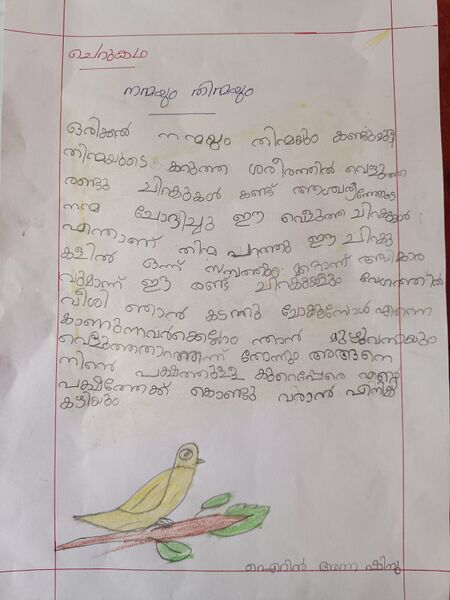 ചെറുകഥ
നന്മയും തിന്മയും
ഒരിക്കൽ നന്മയും തിന്മയും കണ്ടുമുട്ടി
തിന്മയുടെ കറുത്ത ശരീരത്തിൽ വെളുത്ത
രണ്ടു ചിറകുകൾ കണ്ട് ആശ്ചര്യത്തോടെ
നന്മ ചോദിച്ചു ഈ വെളുത്ത ചിറകുകൾ
എന്താണ് തിന്മ പറഞ്ഞു ഈ ചിറകു
കളിൽ ഒന്ന് സമ്പത്തും മറ്റൊന്ന് അധികാര
വുമാണ് ഈ രണ്ട് ചിറകുകളും വേഗത്തിൽ
വീശി ഞാൻ കടന്നു പോകുമ്പോൾ എന്നെ
കാണുന്നവർക്കെല്ലാം ഞാൻ മുഴുവനായും
വെളുത്തതാണെന്ന് തോന്നും അങ്ങനെ
നിന്റെ പക്ഷത്തുള്ള കുറെപ്പേരെ എന്റെ
പക്ഷത്തേക്ക് കൊണ്ടു വരാൻ എനിക്ക്
കഴിയും
ഐറിൻ അന്ന ഷിനു